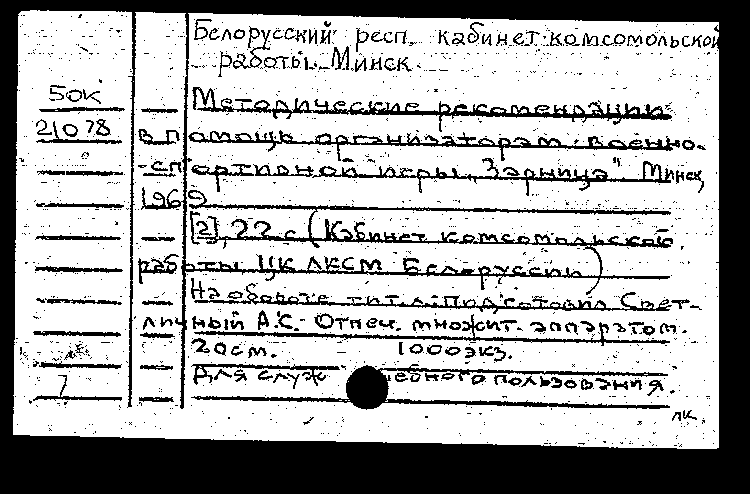 Белорусский респ. кабинет комсомольской
работы. Минск.
50к
Методические рекомендации
21078
в помощь организаторам военно-
-спортивной игры „Зарница". Минск,
1969
[2], 22 с (Кабинет комсомольской
работы ЦК ЛКСМ Белоруссии)
На обороте тит.л.: Подготовил Свет-
личный А.С.- Отпеч. множит. аппаратом.
20см. 1000экз.
Для служебного пользования.
7
лк